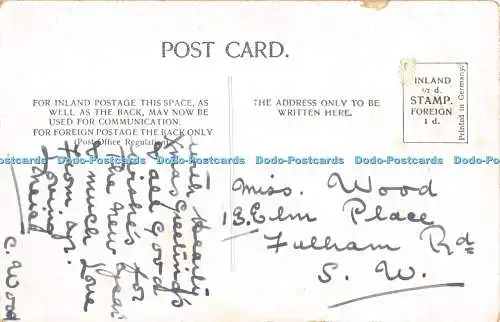 POST CARD.
FOR INLAND POSTAGE THIS SPACE, AS
WELL AS THE BACK, MAY NOW BE
USED FOR COMMUNICATION.
FOR FOREIGN POSTAGE THE BACK ONLY
(Post Office Regulation).
THE ADDRESS ONLY TO BE
WRITTEN HERE.
INLAND
½ d.
STAMP.
FOREIGN
1 d.
Printed in Germany.
With Hearty
Xmas Greeting's
& all Good
Wishe's for
the New Year
& much Love
from yr.
loving
C. Wood
Miss. Wood
13. Elm Place
Fulham Rd
S. W.
D-Postcards Delcampe-Postcards Delcampe-Postcards Delcampe-Postcards